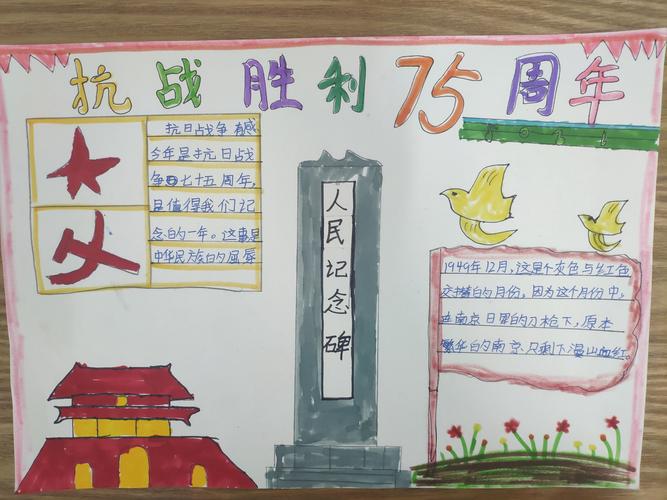 抗战胜利75周年
抗日战争有感
今年是抗日战
争七十五周年,
且值得我们记
念的一年。这事是
中华民族的屈辱
人民记念碑
1949年12月,这是个灰色与红色
交替的月份,因为这个月份中,
在南京日军的刀枪下,原本
繁华的南京只剩下漫山血红。